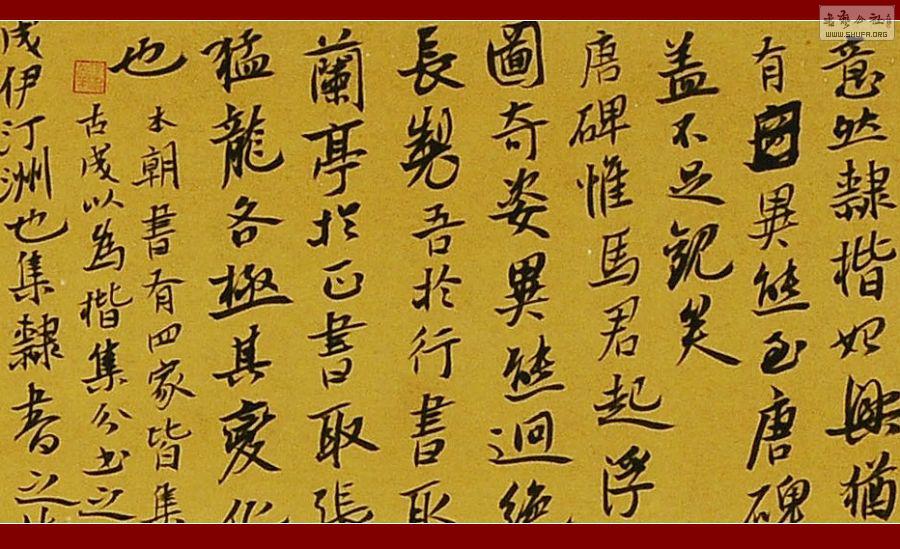 意然隸楷始興猶
有異態至唐碑
蓋不足觀矣
唐碑惟馬君起浮
圖奇姿異態迥絕
長製吾於行書取
蘭亭於正書取張
猛龍各極其變化
也 本朝書有四家皆集
古成以為楷集分書之
成伊汀洲也集隸書之成
WWW.SHUFA.ORG